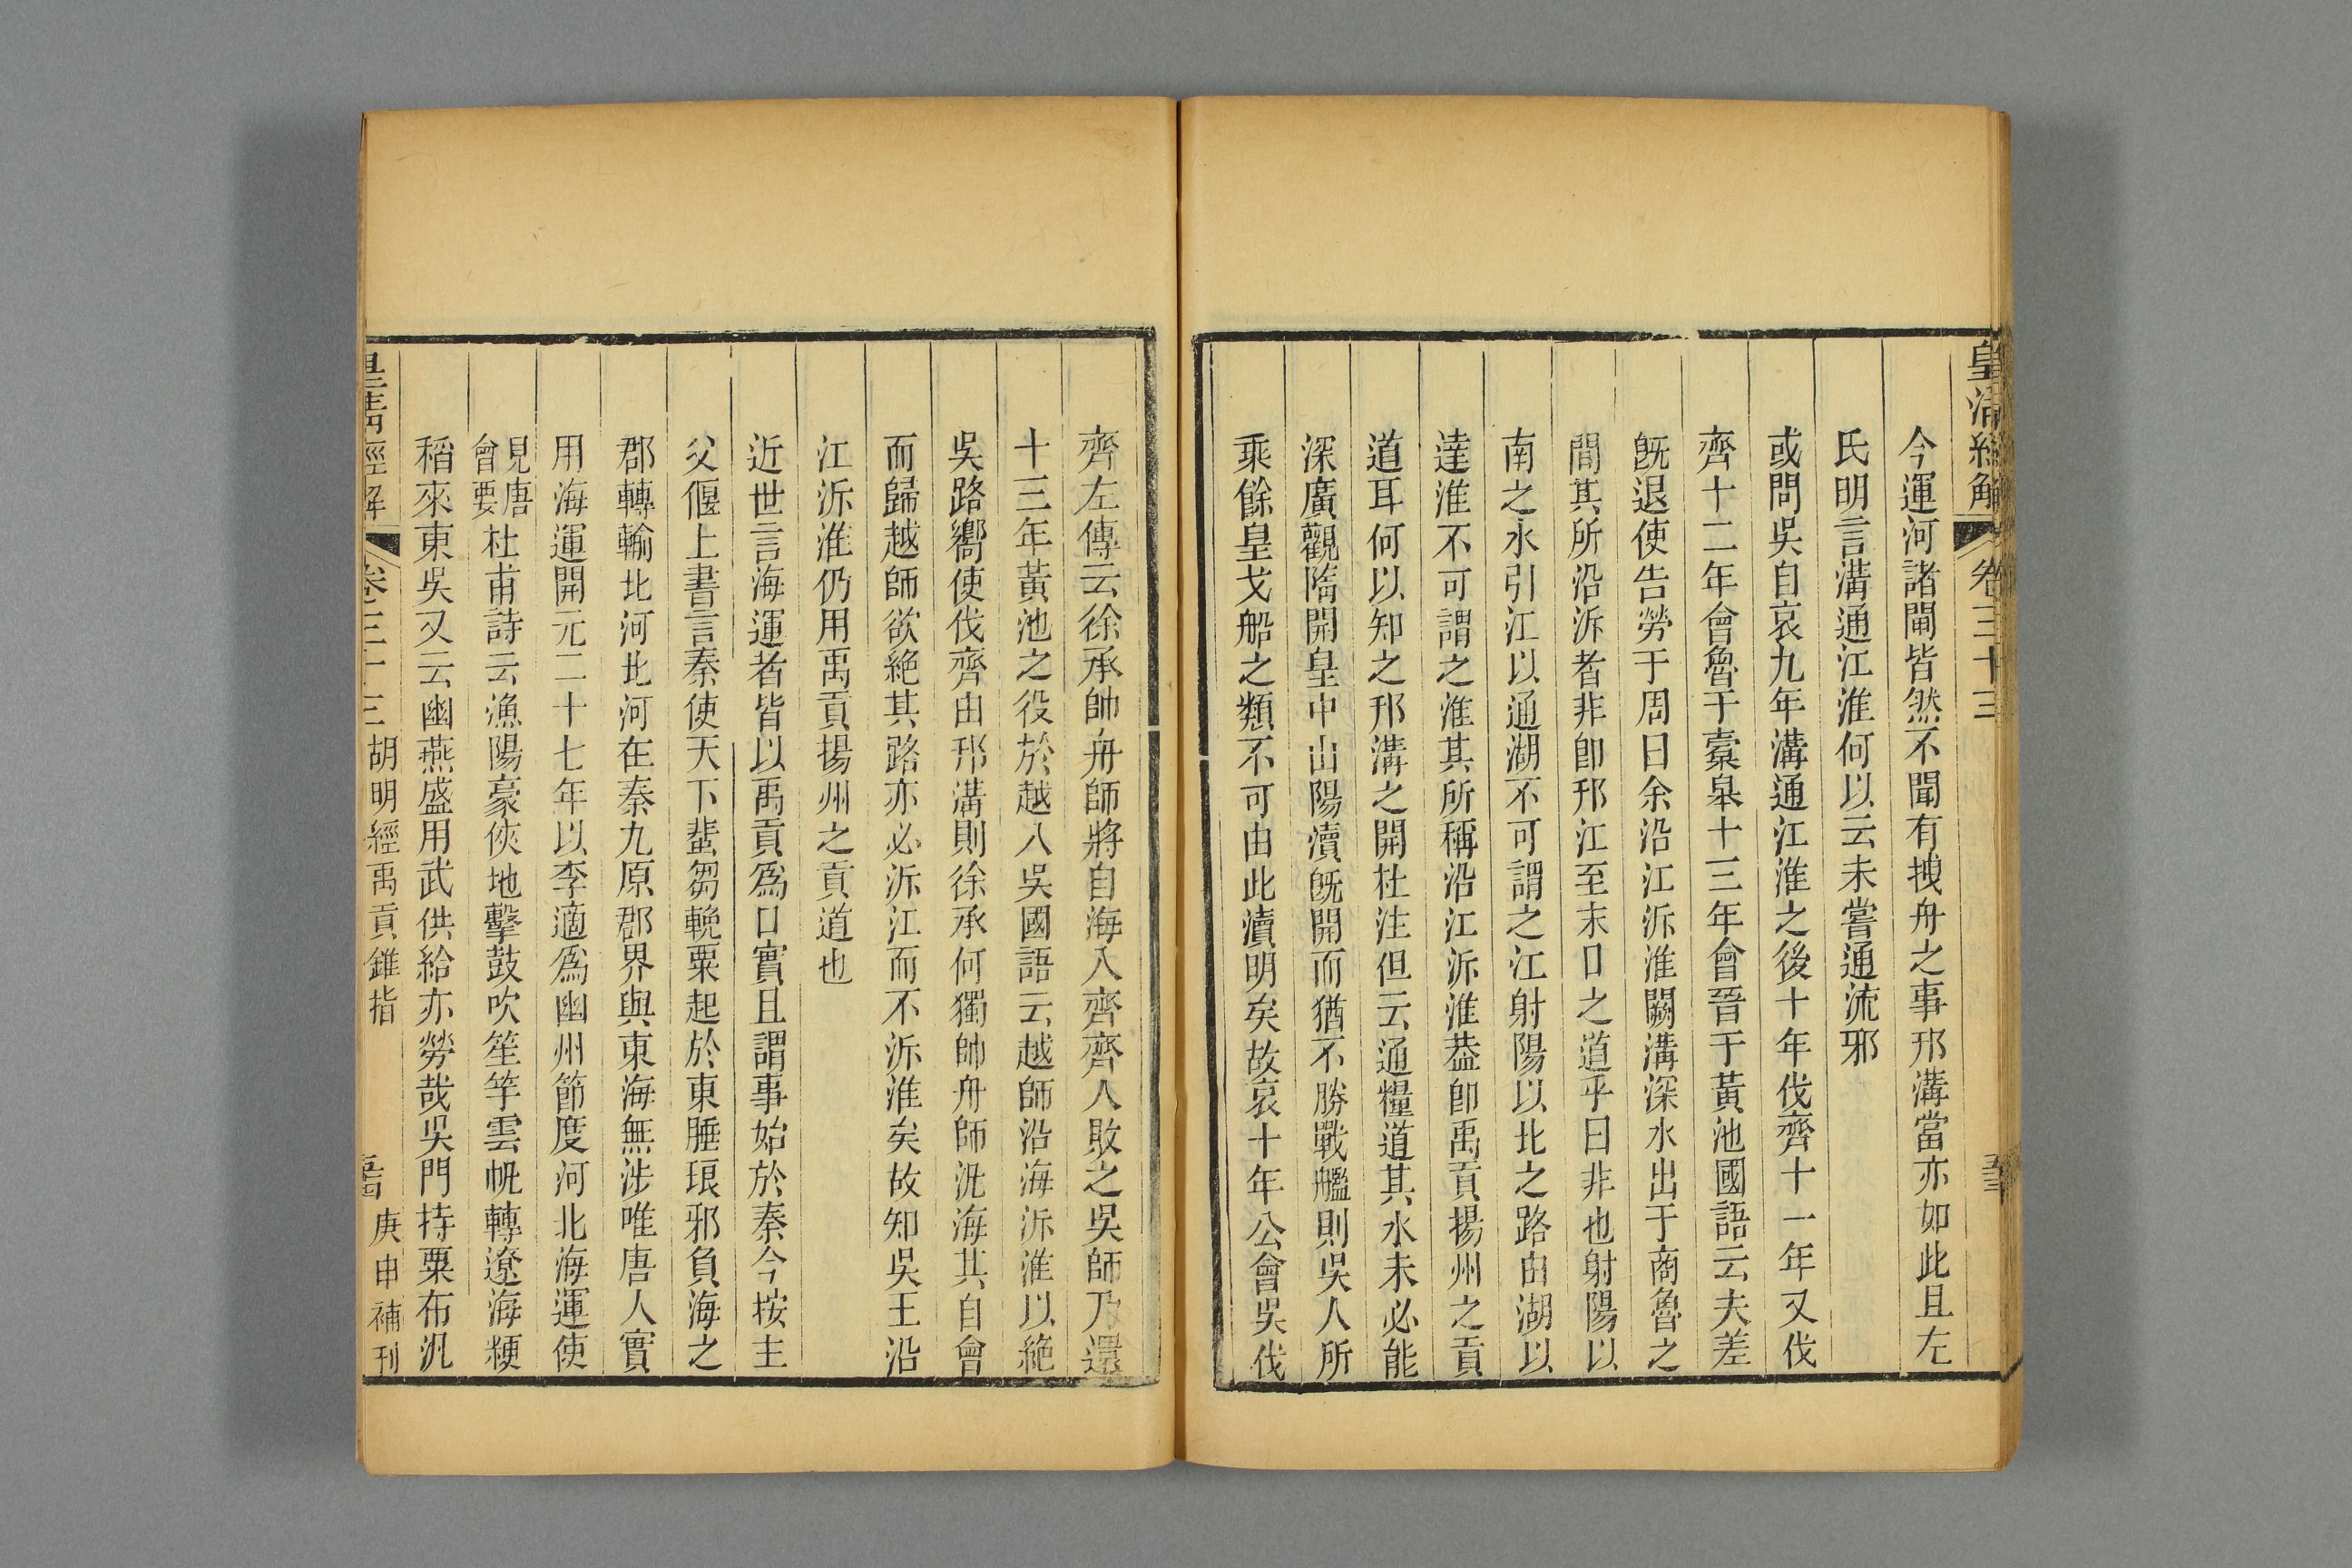 皇清經解
卷三十三
今運河諸閘皆然不聞有拽舟之事邗溝當亦如此且左
氏明言溝通江淮何以云未嘗通流邪
或問吳自哀九年溝通江淮之後十年伐齊十一年又伐
齊十二年會魯于橐皋十三年會晉于黃池國語云夫差
旣退使告勞于周曰余沿江泝淮闕溝深水出于商魯之
間其所沿泝者非卽邗江至末口之道乎曰非也射陽以
南之水引江以通湖不可謂之江射陽以北之路由湖以
達淮不可謂之淮其所稱沿江泝淮葢卽禹貢揚州之貢
道耳何以知之邗溝之開杜注但云通糧道其水未必能
深廣觀隋開皇中山陽瀆旣開而猶不勝戰艦則吳人所
乘餘皇戈船之類不可由此瀆明矣故哀十年公會吳伐
齊左傳云徐承帥舟師將自海入齊齊人敗之吳師乃還
十三年黃池之役於越入吳國語云越師沿海泝淮以絶
吳路嚮使伐齊由邗溝則徐承何獨帥舟師汎海其自會
而歸越師欲絶其路亦必泝江而不泝淮矣故知吳王沿
江泝淮仍用禹貢揚州之貢道也
近世言海運者皆以禹貢爲口實且謂事始於秦今按主
父偃上書言秦使天下蜚芻輓粟起於東腄琅邪負海之
郡轉輸北河北河在秦九原郡界與東海無涉唯唐人實
用海運開元二十七年以李適爲幽州節度河北海運使
見唐
會要
杜甫詩云漁陽豪俠地擊鼓吹笙竽雲帆轉遼海粳
稻來東吳又云幽燕盛用武供給亦勞哉吳門持粟布汎
皇清經解
卷三十三
胡明經禹貢錐指
庚申補刊